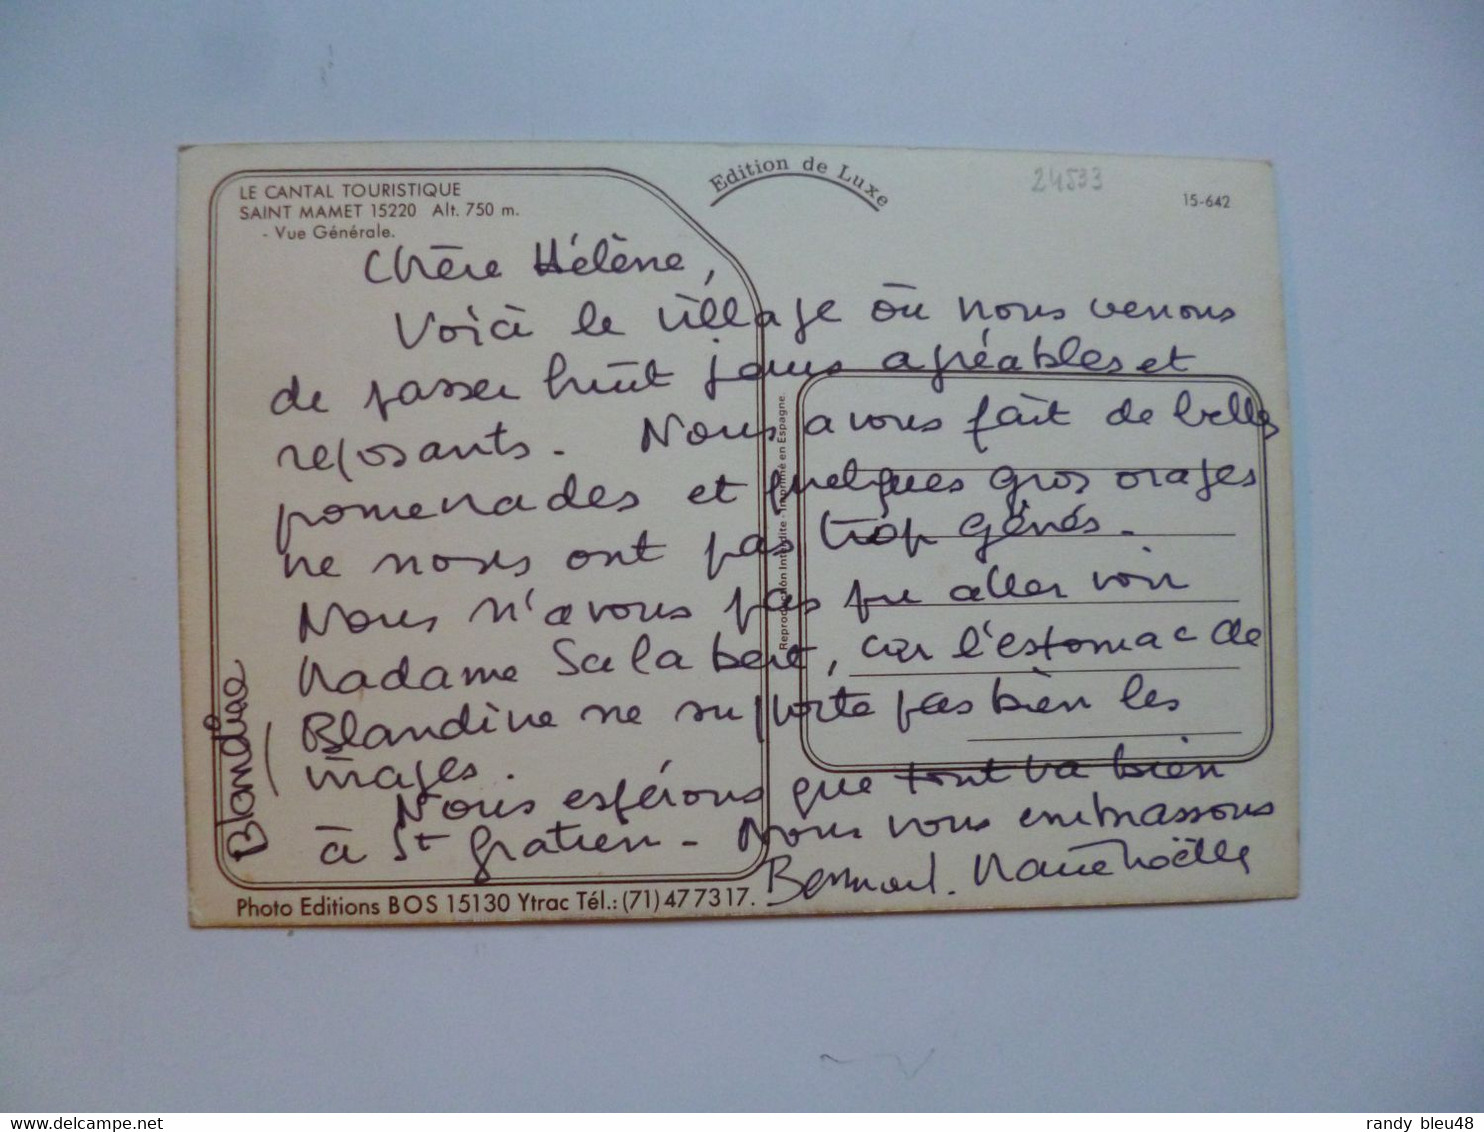 Edition de Luxe
24533
15-642
LE CANTAL TOURISTIQUE
SAINT MAMET 15220 Alt. 750 m.
- Vue Générale.
Chère Hélène,
Voici le village où nous venons
de passer huit jours agréables et
reposants. Nous avons fait de belles
promenades et quelques gros orages
ne nous ont pas trop gênés.
Nous n'avons pas pu aller voir
Madame Salabert, car l'estomac de
Blandine ne supporte pas bien les
virages.
Nous espérons que tout va bien
à St Gratien - Nous vous embrassons
Bernard. Marie Noëlle
Blandine
Reproduction Interdite - Imprimé en Espagne.
Photo Editions BOS 15130 Ytrac Tél.: (71) 47 73 17.
delcampe.net
randy_bleu48